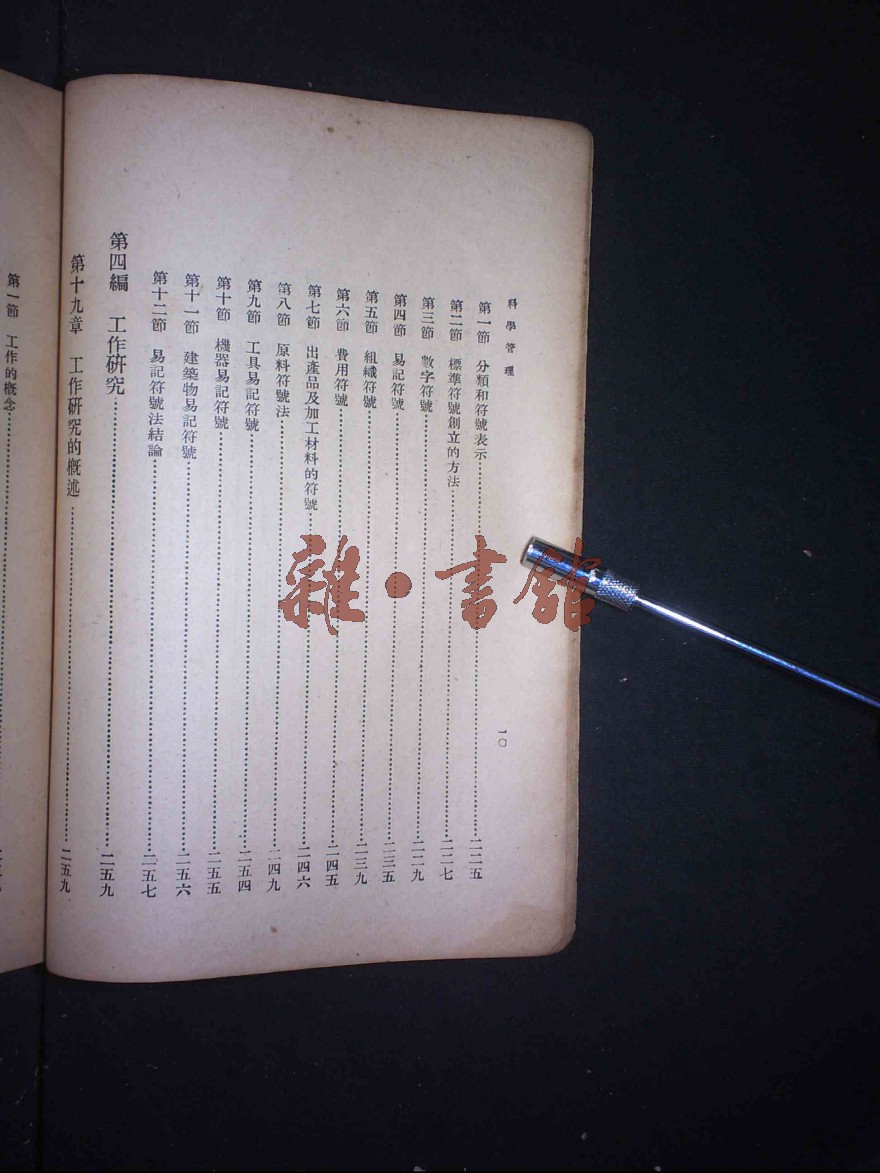 科學管理
一〇
第一節 分類和符號表示……二二五
第二節 標準符號創立的方法……二二七
第三節 數字符號……二二九
第四節 易記符號……二三五
第五節 組織符號……二三九
第六節 費用符號……二四五
第七節 出產品及加工材料的符號……二四六
第八節 原料符號法……二四九
第九節 工具易記符號……二五四
第十節 機器易記符號……二五五
第十一節 建築物易記符號……二五六
第十二節 易記符號法結論……二五七
第四編 工作研究……二五九
第十九章 工作研究的概述……二五九
第一節 工作的概念……
雜·書館